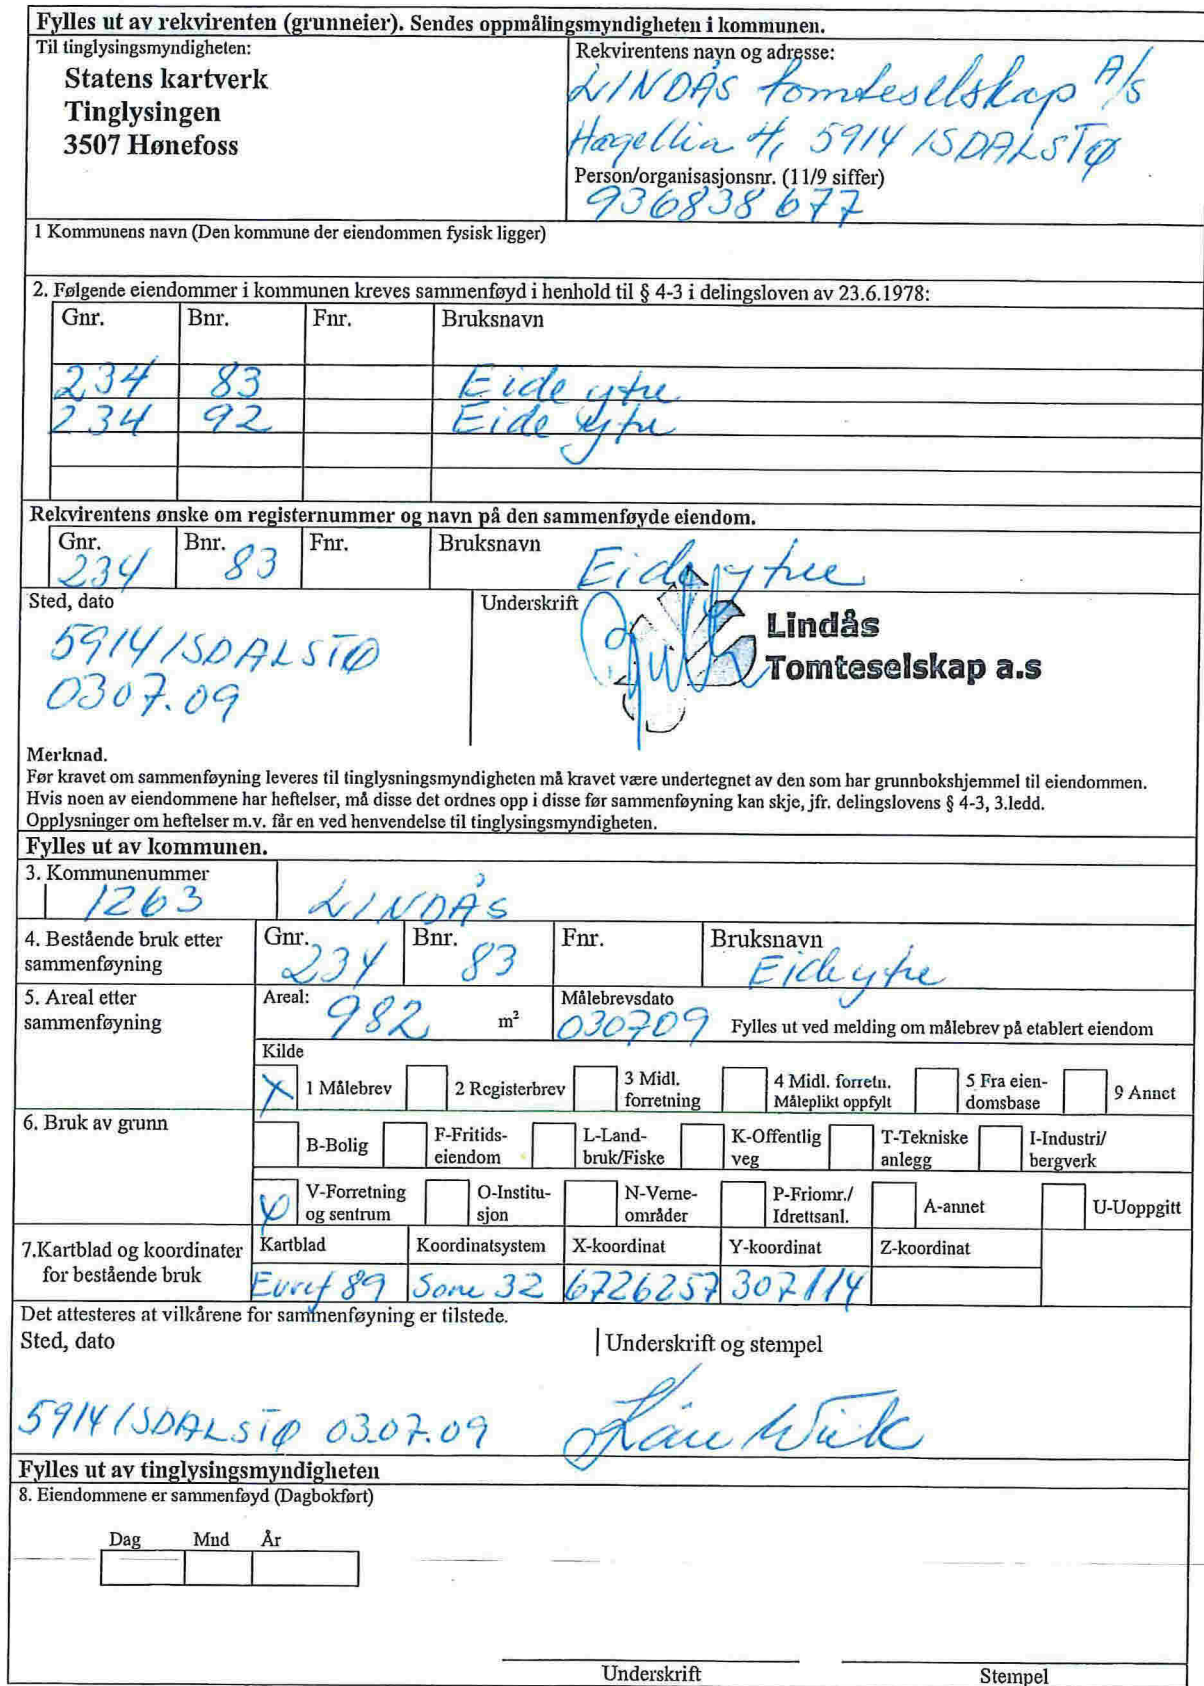 Fylles ut av rekvirenten (grunneier). Sendes oppmålingsmyndigheten i kommunen.
Til tinglysingsmyndigheten:
Statens kartverk
Tinglysingen
3507 Hønefoss
Rekvirentens navn og adresse:
LINDÅS tomteselskap A/s
4, 5914 ISDALSTØ
Person/organisasjonsnr. (11/9 siffer)
936838677
1 Kommunens navn (Den kommune der eiendommen fysisk ligger)
2. Følgende eiendommer i kommunen kreves sammenføyd i henhold til § 4-3 i delingsloven av 23.6.1978:
Gnr. Bnr. Fnr. Bruksnavn
234 83 Eide ytre
234 92 Eide ytre
Rekvirentens ønske om registernummer og navn på den sammenføyde eiendom.
Gnr. Bnr. Fnr. Bruksnavn
234 83 Eide ytre
Sted, dato
5914 ISDALSTØ
0307.09
Underskrift
Lindås
Tomteselskap a.s
Merknad.
Før kravet om sammenføyning leveres til tinglysningsmyndigheten må kravet være undertegnet av den som har grunnbokshjemmel til eiendommen.
Hvis noen av eiendommene har heftelser, må disse det ordnes opp i disse før sammenføyning kan skje, jfr. delingslovens § 4-3, 3.ledd.
Opplysninger om heftelser m.v. får en ved henvendelse til tinglysingsmyndigheten.
Fylles ut av kommunen.
3. Kommunenummer
1263 LINDÅS
4. Bestående bruk etter sammenføyning
Gnr. Bnr. Fnr. Bruksnavn
234 83 Eide ytre
5. Areal etter sammenføyning
Areal: 982 m²
Målebrevsdato
030709 Fylles ut ved melding om målebrev på etablert eiendom
Kilde
X 1 Målebrev 2 Registerbrev 3 Midl. forretning 4 Midl. forretn. Måleplikt oppfylt 5 Fra eien-domsbase 9 Annet
6. Bruk av grunn
B-Bolig F-Fritids-eiendom L-Land-bruk/Fiske K-Offentlig veg T-Tekniske anlegg I-Industri/bergverk
V-Forretning og sentrum O-Institu-sjon N-Verne-områder P-Friomr./Idrettsanl. A-annet U-Uoppgitt
7.Kartblad og koordinater for bestående bruk
Kartblad Koordinatsystem X-koordinat Y-koordinat Z-koordinat
Euref 89 Sone 32 6726257 307114
Det attesteres at vilkårene for sammenføyning er tilstede.
Sted, dato
Underskrift og stempel
5914 ISDALSTØ 03.07.09
Fylles ut av tinglysingsmyndigheten
8. Eiendommene er sammenføyd (Dagbokført)
Dag Mnd År
Underskrift
Stempel